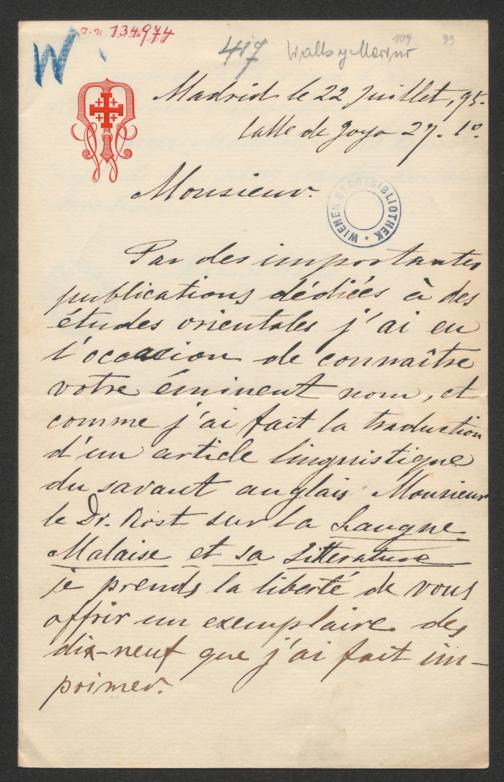 W
I.N. 134.974
417 Walls y Merino 109 93
Madrid le 22 Juillet, 95.
Calle de Goya 27. 1º
WIENER STADTBIBLIOTHEK
Monsieur.
Par des importantes
publications dédiées à des
études orientales j'ai eu
l'occasion de connaître
votre éminent nom, et
comme j'ai fait la traduction
d'un article linguistique
du savant anglais Monsieur
le Dr. Rost sur la Langue
Malaise et sa Litterature
je prends la liberté de vous
offrir un exemplaire des
dix-neuf que j'ai fait im-
primer.